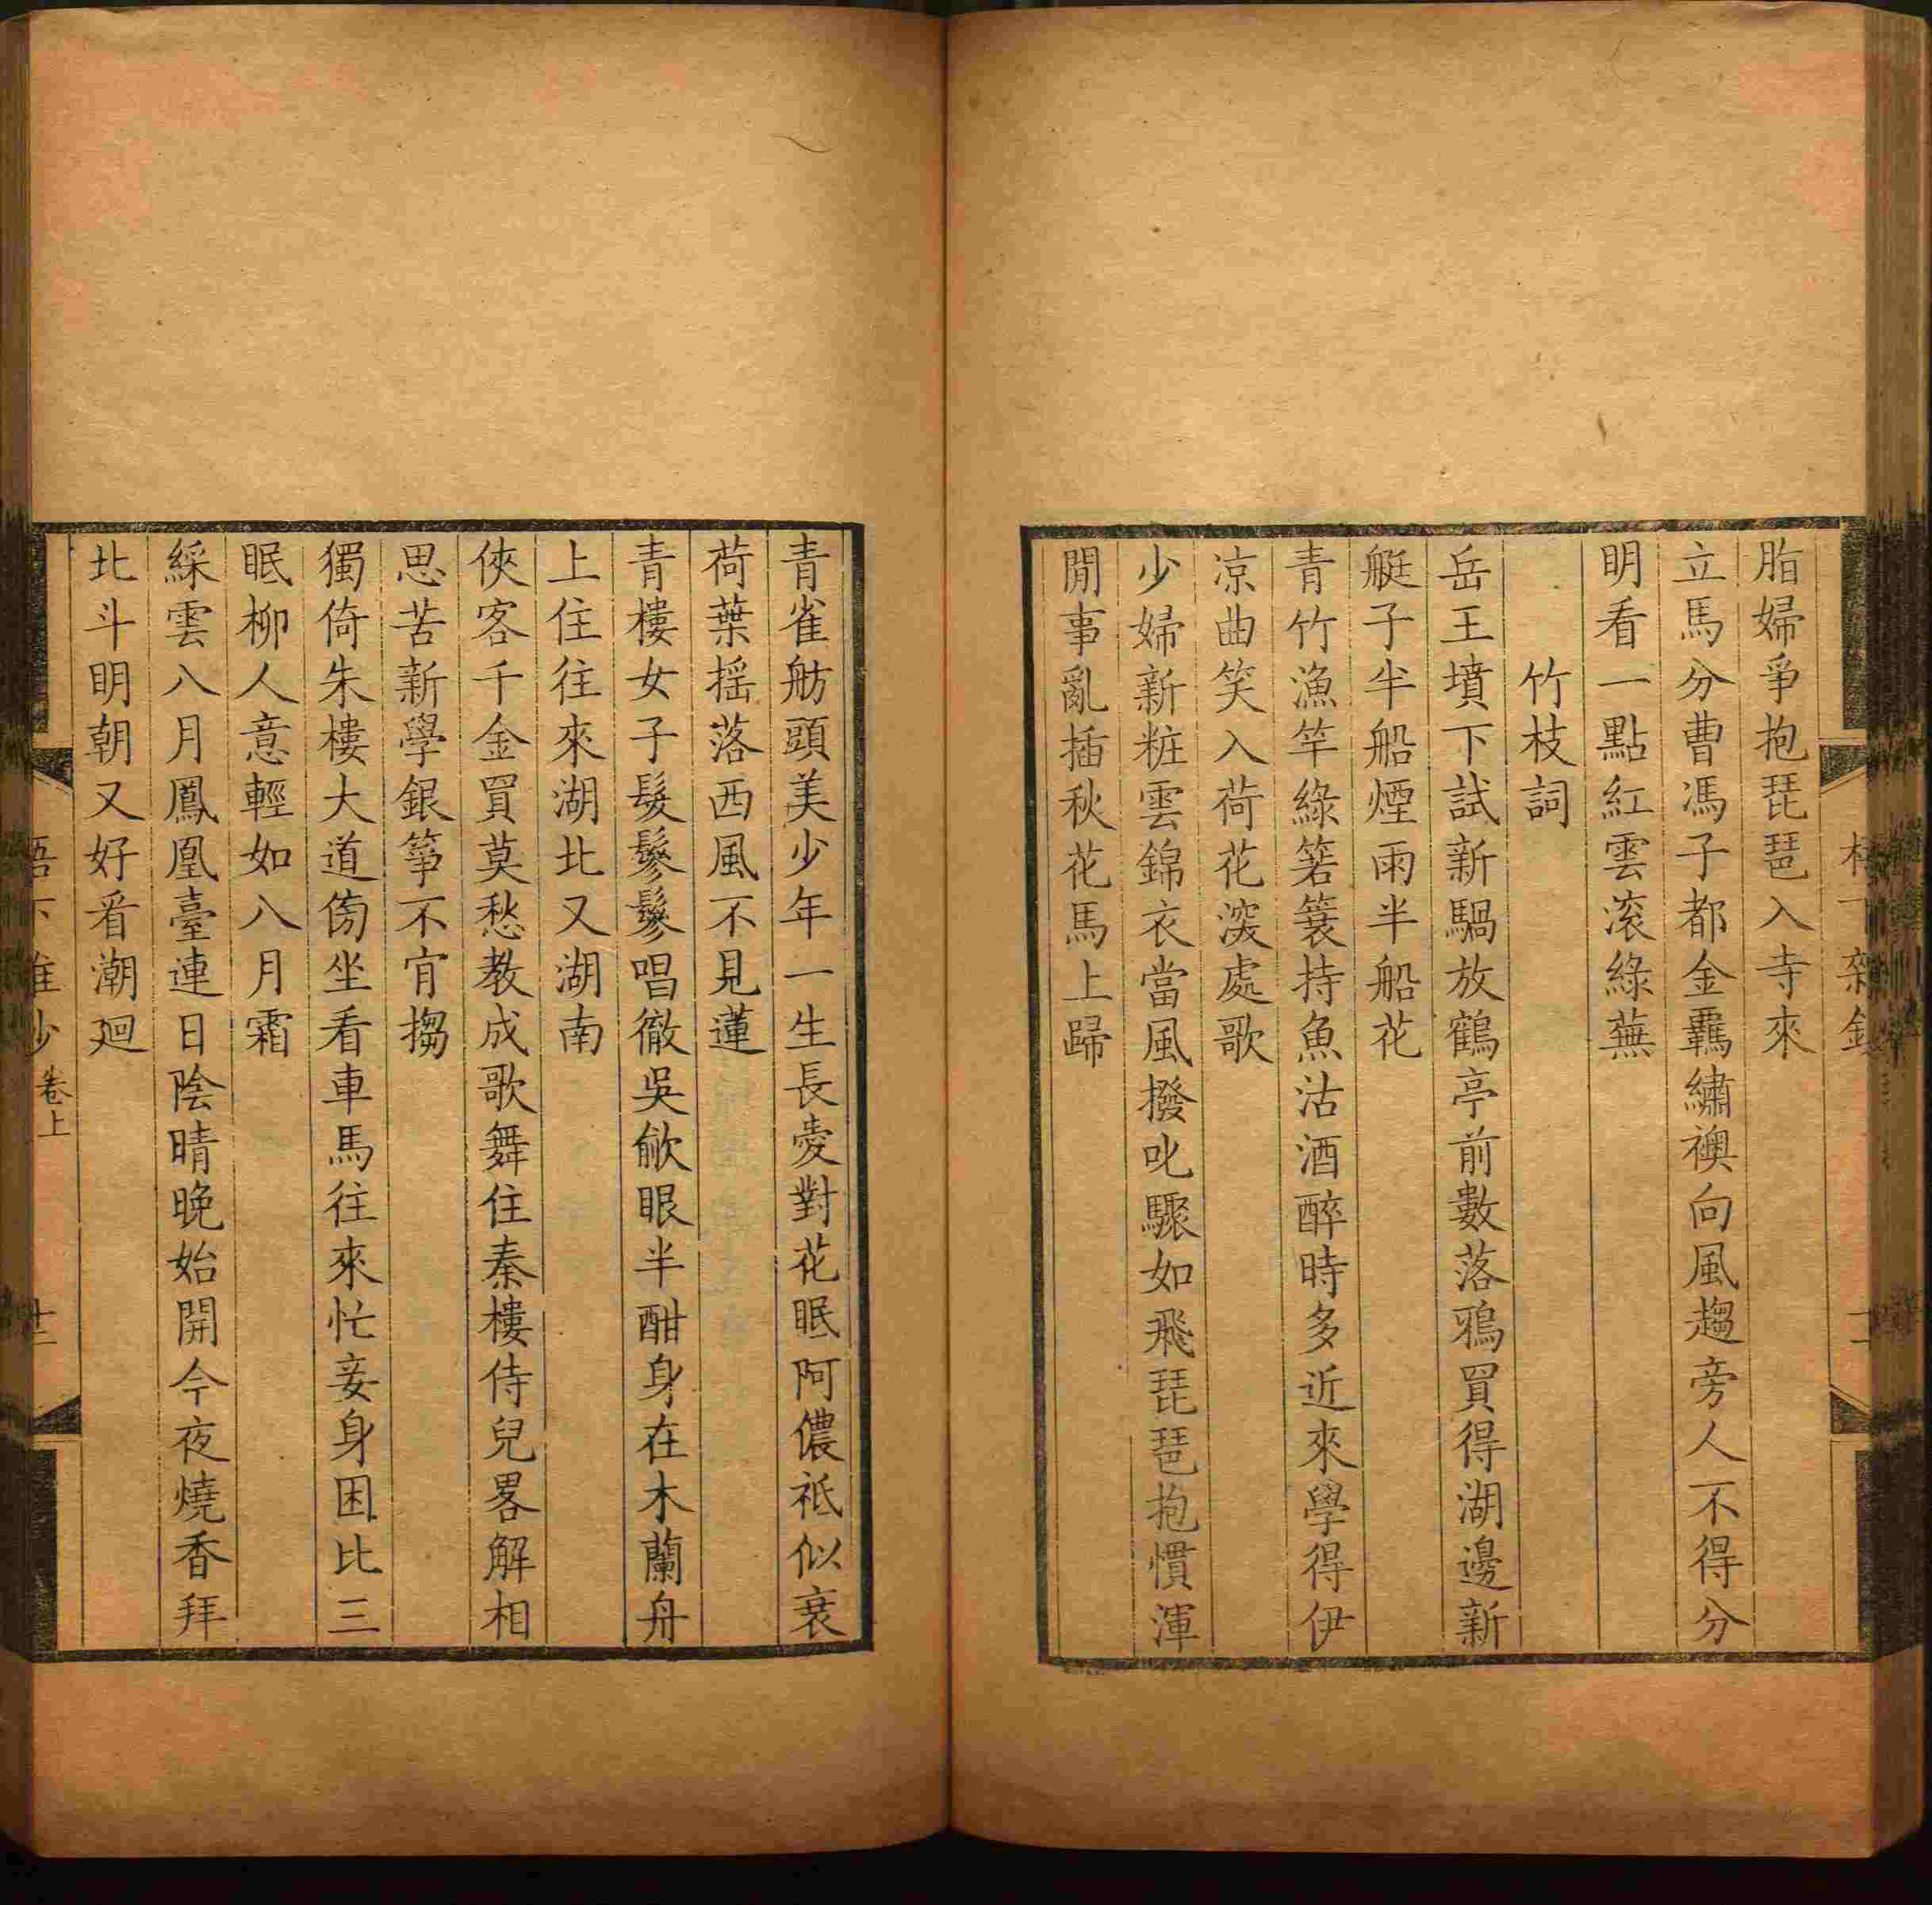 脂婦爭抱琵琶入寺來
立馬分曹馮子都金羈繡襖向風趨旁人不得分
明看一點紅雲滚綠蕪
竹枝詞
岳王墳下試新騧放鶴亭前數落鴉買得湖邊新
艇子半船煙雨半船花
青竹漁竿綠箬簑持魚沽酒醉時多近來學得伊
凉曲笑入荷花深處歌
少婦新粧雲錦衣當風撥叱驟如飛琵琶抱慣渾
閒事亂插秋花馬上歸
青雀舫頭美少年一生長愛對花眠阿儂祗似衰
荷葉揺落西風不見蓮
青樓女子髮鬖鬖唱徹吳歈眼半酣身在木蘭舟
上住往來湖北又湖南
俠客千金買莫愁教成歌舞住秦樓侍兒畧解相
思苦新學銀箏不肎搊
獨倚朱樓大道傍坐看車馬往來忙妾身困比三
眠柳人意輕如八月霜
綵雲八月鳳凰臺連日陰晴晚始開今夜燒香拜
北斗明朝又好看潮廻
卷上
十二